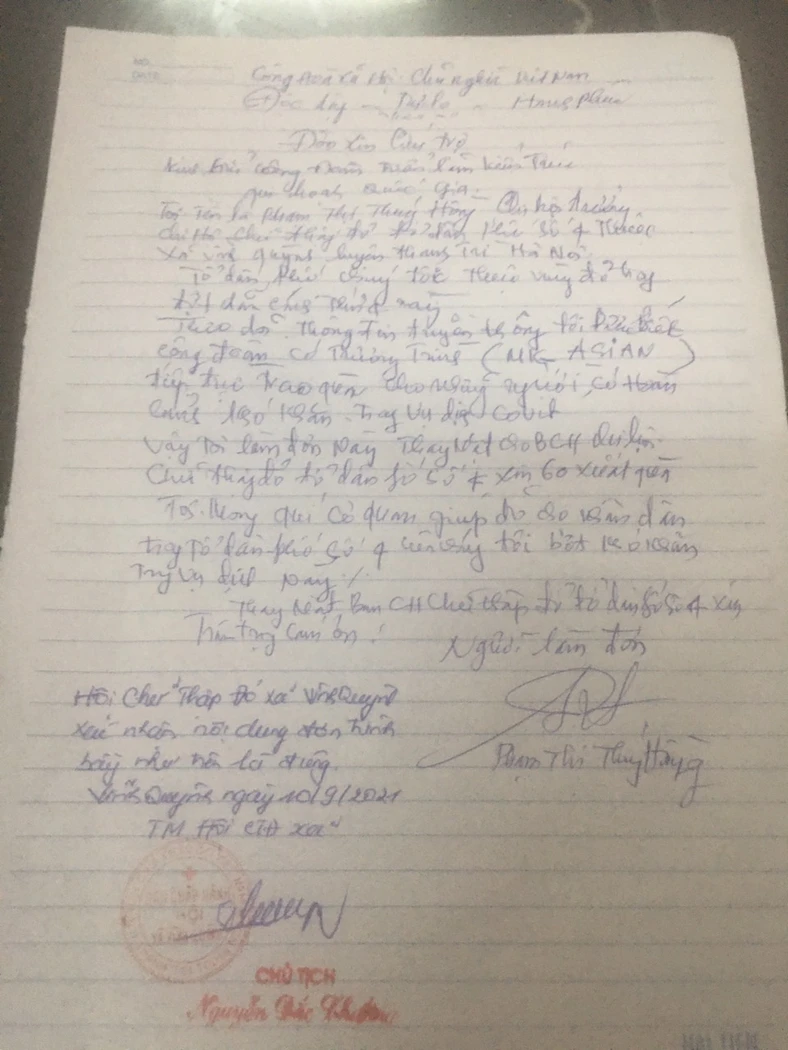 NO.
DATE.
Cộng hoà xã Hội Chủ nghĩa Việt Nam
Độc lập - Tự do - Hạnh phúc
Đơn xin Cứu trợ
Kính gửi Công Đoàn Viên Kiến Trúc
quy hoạch Quốc Gia.
Tôi Tên là Phạm Thị Thuý Hồng Chi hội trưởng
Chi Hội Chữ thập đỏ tổ dân phố số 4 Thuộc
xã Vĩnh Quỳnh huyện Thanh Trì Hà Nội
Tổ dân phố chúng tôi thuộc vùng đỏ
Theo dõi Thông tin truyền thông tôi được biết
công đoàn có Chương Trình (MR ASIAN)
tiếp tục Trao quà cho những người có hoàn
cảnh khó khăn trong vụ dịch Covit
Vậy Tôi làm đơn này Thay Mặt cho BCH Chi hội
Chữ thập đỏ tổ dân số 4 xin 60 xuất quà
Tôi mong quí cơ quan giúp đỡ cho nhân dân
trong Tổ dân phố số 4 của chúng tôi bớt khó khăn
Trong vụ dịch này ./.
Thay Mặt Ban CH Chữ thập đỏ tổ dân số 4 xin
Trân trọng cám ơn !
Người làm đơn
Phạm Thị Thuý Hồng
Hội Chữ Thập Đỏ xã Vĩnh Quỳnh
xác nhận nội dung đơn trình
bày như trên là đúng.
Vĩnh Quỳnh ngày 10/9/2021
TM Hội CTĐ xã
CHỦ TỊCH
Nguyễn Đắc